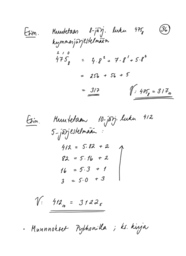 Esim. Muutetaan 8-järj. luku 475₈ (36)
kymmenjärjestelmään
2 1 0
475₈ = 4·8² + 7·8¹ + 5·8⁰
= 256 + 56 + 5
= 317 V: 475₈ = 317₁₀
Esim. Muutetaan 10-järj. luku 412
5-järjestelmään:
412 = 5·82 + 2
82 = 5·16 + 2
16 = 5·3 + 1
3 = 5·0 + 3
V: 412₁₀ = 3122₅
- Muunnokset Pythonilla; ks. kirja